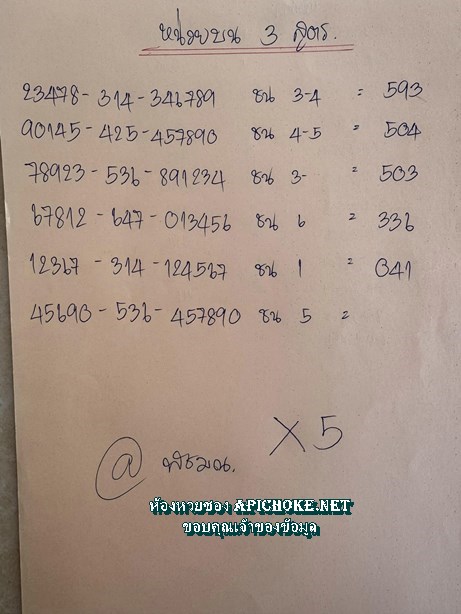 หน่วยบน 3 สูตร.
23478 - 314 - 346789 ชน 3-4 = 593
90145 - 425 - 457890 ชน 4-5 = 504
78923 - 536 - 891234 ชน 3- = 503
67812 - 647 - 013456 ชน 6 = 336
12367 - 314 - 124567 ชน 1 = 041
45690 - 536 - 457890 ชน 5 =
X5
@
ห้องหวยซอง APICHOKE.NET
ขอบคุณเจ้าของข้อมูล